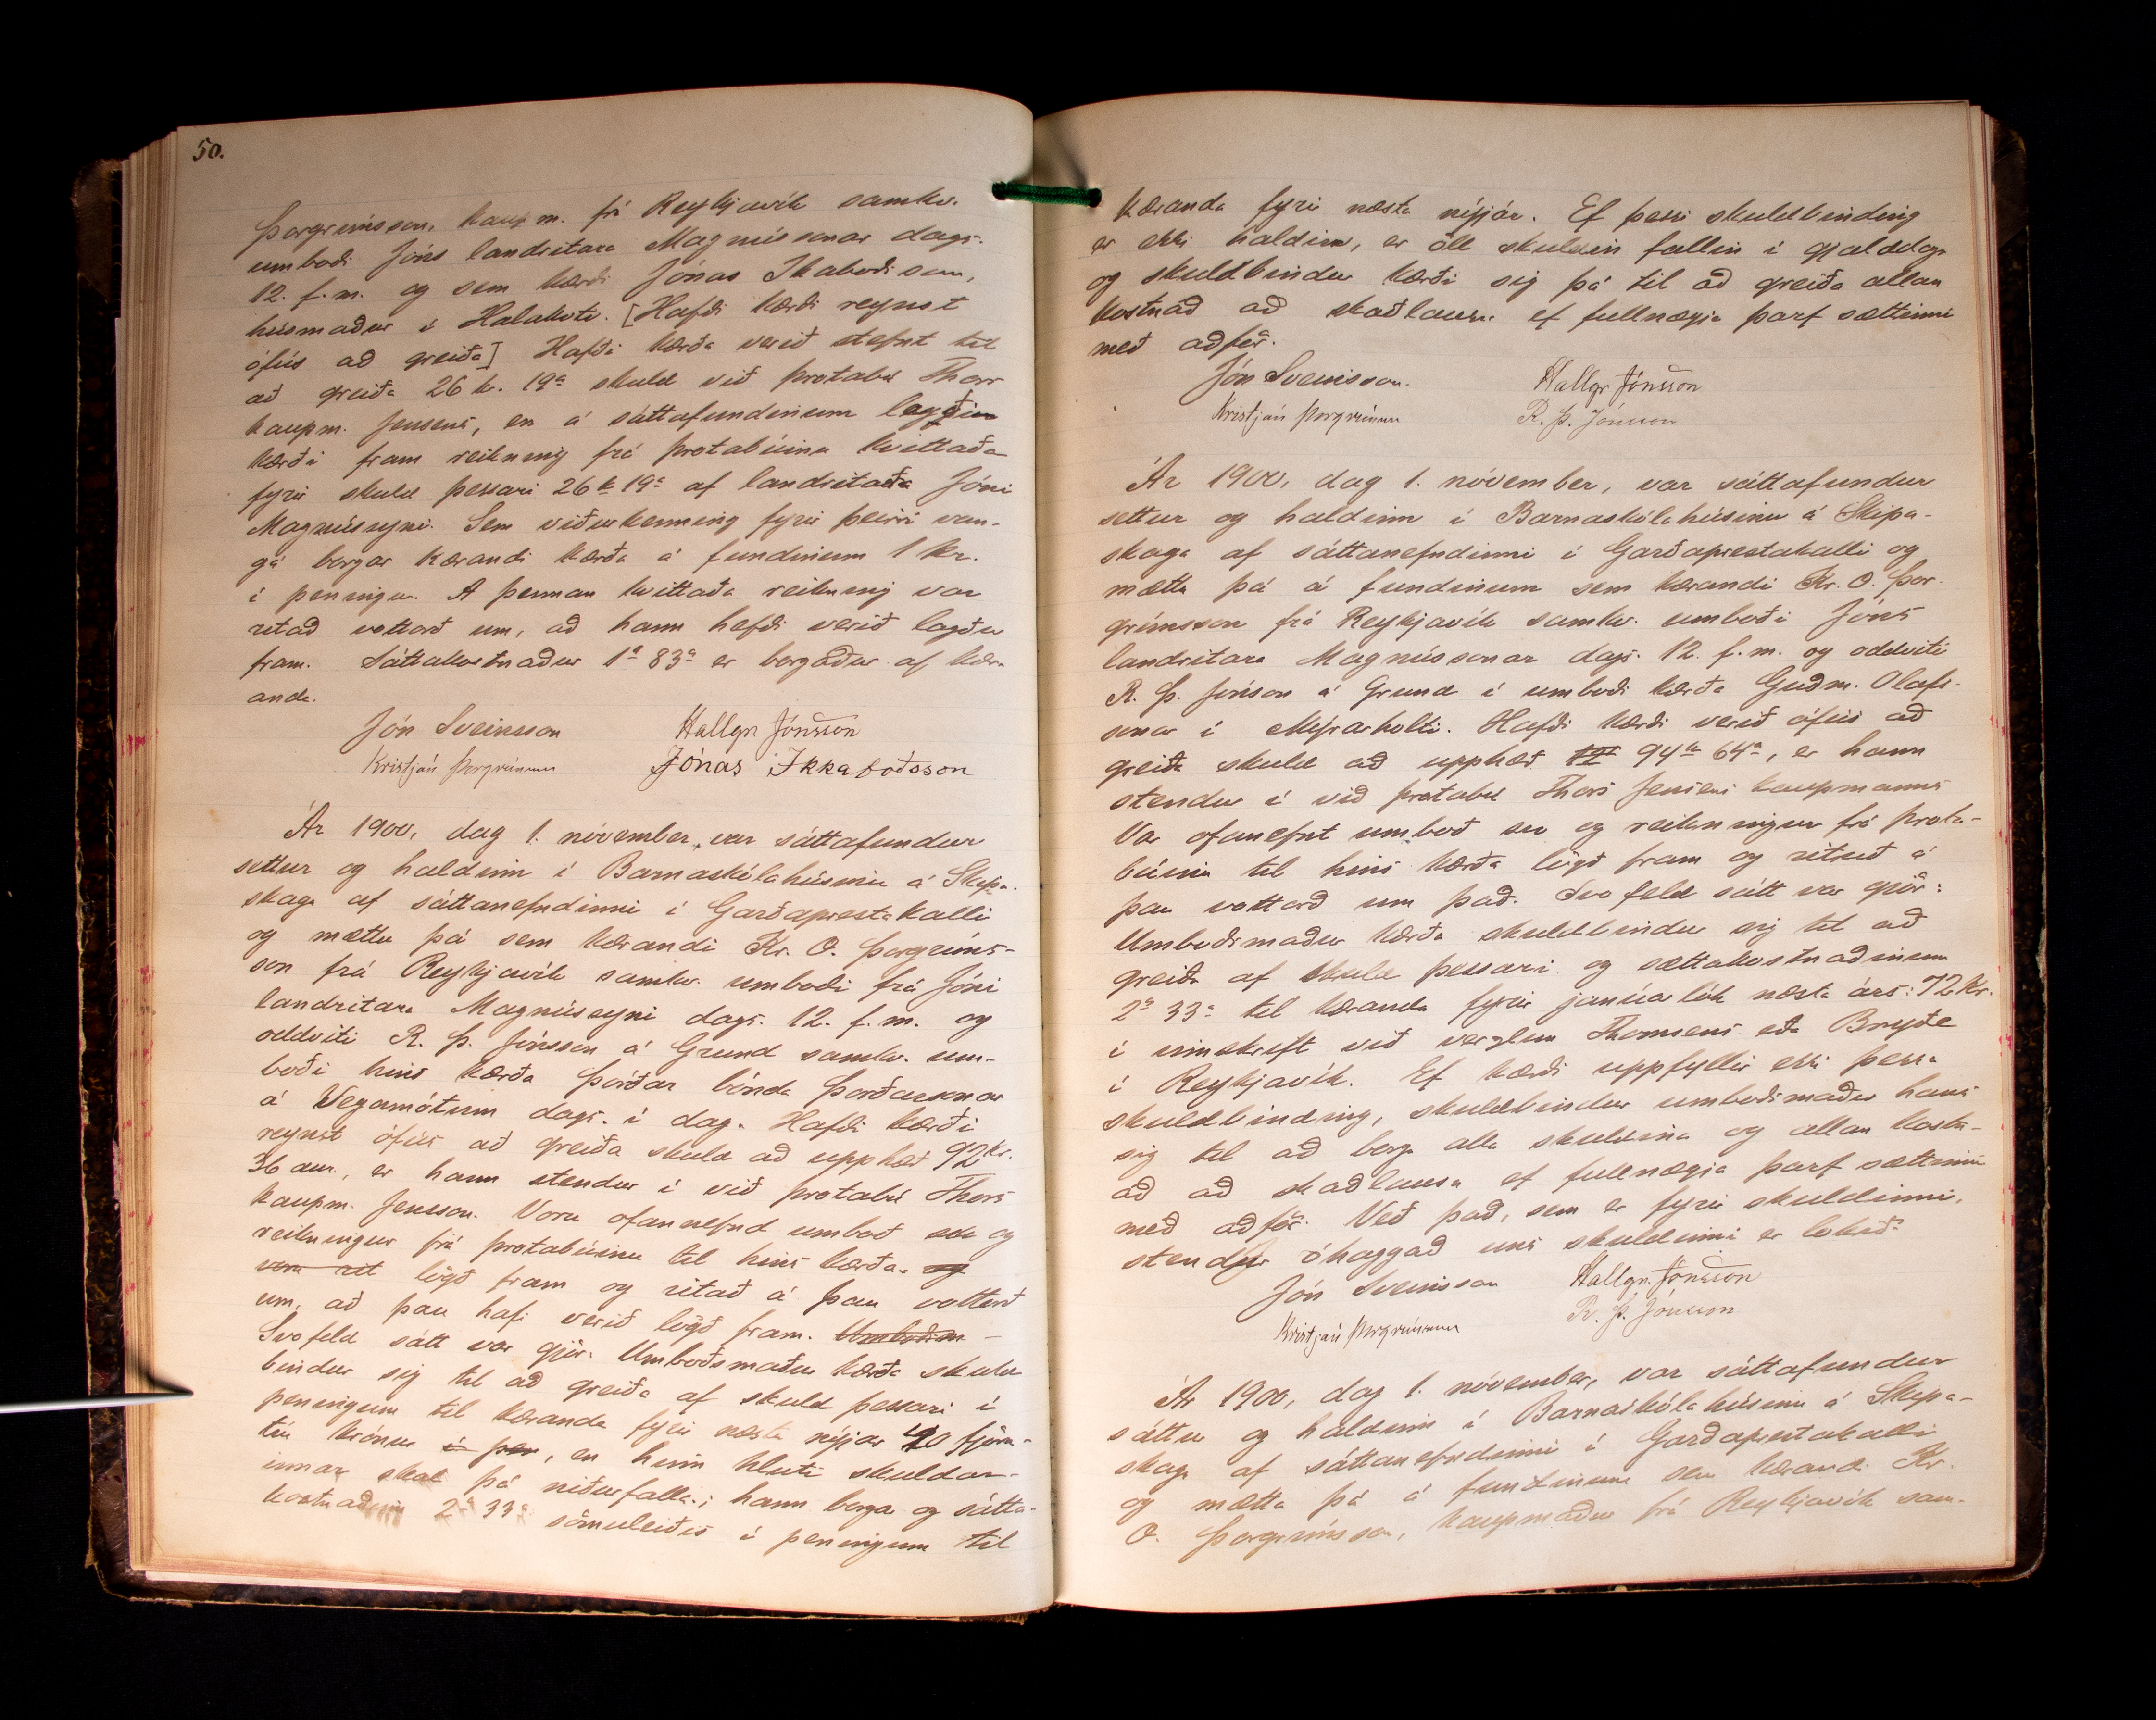 50.
Þorgrímsson, kaupm. frá Reykjavík samkv.
umboði Jóns landritara Magnússonar dags.
12. f.m. og sem kærði Jónas Ikaboðsson,
húsmaður í Halakoti. [Hafði kærði reynst
ófús að greiða] Hafði kærða verið stefnt til
að greiða 26 kr. 19a skuld við þrotabú Thors
kaupm. Jensens, en á sáttafundinum lagði
kærði fram reikning frá þrotabúinu kvittaða
fyrir skuld þessari 26 k 19a af landritara Jóni
Magnússyni. Sem viðurkenning fyrir þeirri van-
gá borgar kærandi kærða á fundinum 1 kr.
í peningum. A þennan kvittaða reikning var
ritað vottorð um, að hann hefði verið lagður
fram. Sáttakostnaður 1a 83a er borgaður af kær-
anda.
Jón Sveinsson Hallgr Jónsson
Kristján Þorgrímsson Jónas Ikkaboðsson
Ár 1900, dag 1. nóvember, var sáttafundur
settur og haldinn í Barnaskólahúsinu á Skipa-
skaga af sáttanefndinni í Garðaprestakalli
og mættu þá sem kærandi Kr. O. Þorgríms-
son frá Reykjavík samkv. umboði frá Jóni
landritara Magnússyni dags. 12. f. m. og
oddviti R. Þ. Jónsson á Grund samkv. um-
boði hins kærða Þórðar bónda Þórðarsonar
á Vegamótum dags. í dag. Hafði kærði
reynst ófús að greiða skuld að upphæð 92 kr.
36 aur., er hann stendur í við þrotabú Thors
kaupm. Jensson. Voru ofannefnd umboð svo og
reikningur frá þrotabúinu til hins kærða og
voru rit lögð fram og ritað á þau vottorð
um, að þau hafi verið lögð fram. Umboðsm-
Svofeld sátt var gjör: Umboðsmaður kærða skuld-
bindur sig til að greiða af skuld þessari í
peningum til kæranda fyrir næsta nýjár 40 fjöru-
tíu krónur í pen, en hinn hluti skuldar-
innar skal þá niðurfalla; hann borga og sátta-
kostnaðinn 2a 33a sömuleiðis í peningum til
kæranda fyrir næsta nýjár. Ef þessi skuldbinding
er ekki haldin, er öll skuldin fallin í gjalddaga
og skuldbindur kærði sig þá til að greiða allan
kostnað að skaðlausu ef fullnægja þarf sættinni
með aðför.
Jón Sveinsson. Hallgr Jónsson
Kristján Þorgrímsson R. Þ. Jónsson
Ár 1900, dag 1. nóvember, var sáttafundur
settur og haldinn í Barnaskólahúsinu á Skipa-
skaga af sáttanefndinni í Garðaprestakalli og
mættu þá á fundinum sem kærandi Kr. O. Þor-
grímsson frá Reykjavík samkv. umboði Jóns
landritara Magnússonar dags. 12. f. m. og oddviti
R. Þ. Jónsson á Grund í umboði kærða Guðm. Olafs-
sonar í Mýrarholti. Hafði kærði verið ófús að
greiða skuld að upphæð 94kr 64a, er hann
stendur í við þrotabú Thors Jensens kaupmanns
Var ofannefnt umboð svo og reikningur frá þrota-
búinu til hins kærða lögð fram og ritað á
þau vottorð um það. Svofeld sátt var gjör:
Umboðsmaður kærða skuldbindur sig til að
greiða af skuld þessari og sáttakostnaðinum
2a 33a til kæranda fyrir janúarlok næsta árs: 72 kr.
í innskrift við verzlun Thomsens eða Bryde
í Reykjavík. Ef kærði uppfyllir ekki þessa
skuldbinding, skuldbindur umboðsmaður hans
sig til að borga alla skuldina og allan kostn-
að að skaðlausu ef fullnægja þarf sættinni
með aðför. Veð það, sem er fyrir skuldinni,
stendur óhaggað uns skuldinni er lokið.
Jón Sveinsson Hallgr. Jónsson
Kristján Þorgrímsson R. Þ. Jónsson
Ár 1900, dag 1. nóvember, var sáttafundur
sáttur og haldinn í Barnaskólahúsinu á Skipa-
skaga af sáttanefndinni í Garðaprestakalli
og mætta þá á fundinum sem kærandi Kr.
O. Þorgrímsson, kaupmaður frá Reykjavík sam-